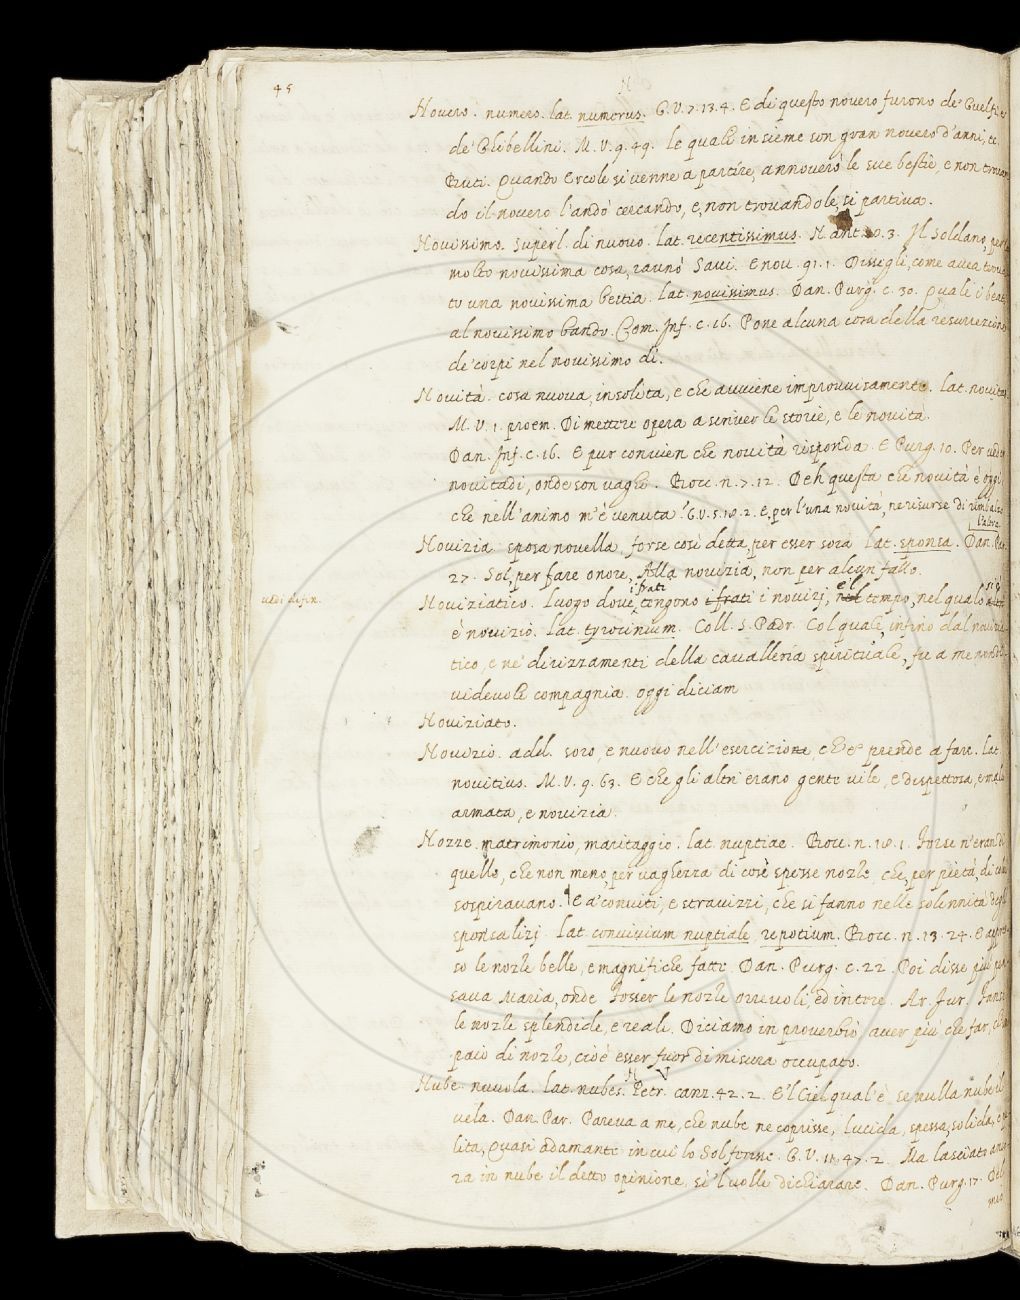 45
N
Novero. numero. lat. numerus. G.V. 7. 13. 4. E di questo novero furono de' Guelfi, e
de' Ghibellini. M.V. 9. 49. le quali insieme son gran novero d'anni, ec.
Quando Ercole si venne a partire, annoverò le sue bestie, e non trovan
do il novero l'andò cercando, e, non trovandole, si partiva.
Novissimo. Superl. di nuovo. lat. recentissimus. N. ant. 20. 3. Il Soldano, per
molto novissima cosa, raunò Savi. E nov. 91. 1. Dissegli, come avea trova
to una novissima bestia. lat. novissimus. Dan. Purg. c. 30. Quali i beati
al novissimo bando. Com. Inf. c. 16. Pone alcuna cosa della resurrezione
de' corpi nel novissimo dì.
Novità. cosa nuova, insolita, e che avviene improvvisamente. lat. novitas
M.V. 1. proem. Di mettere opera a scriver le storie, e le novità.
Dan. Inf. c. 16. E pur convien che novità risponda. E Purg. 10. Per veder
novitadi, onde son vaghi. Bocc. n. 7. 12. Deh questa che novità è oggi
che nell'animo m'è venuta? G.V. 5. 18. 2. e, per l'una novità, ne risurse di rimbalzo
l'altra
Novizia sposa novella, forse così detta, per esser sora lat. sponsa. Dan. Par.
27. Sol, per fare onore, Alla novizia, non per alcun fallo.
vedi defin.
i frati e 'l si è
Noviziatico. Luogo dove, tengono i frati i novizj, nel tempo, nel quale
è novizio. lat. tyrocinium. Coll. S. Padr. Col quale, infino dal novizia
tico, e ne' dirizzamenti della cavalleria spirituale, fu a me non
videvole compagnia. oggi diciam
Noviziato.
Novizio. add. soro, e nuovo nell'esercicio, che prende a fare. lat.
novitius. M.V. 9. 63. E che gli altri erano gente vile, e dispettosa, e male
armata, e novizia.
Nozze. matrimonio, maritaggio. lat. nuptiae. Bocc. n. 18. 1. Forse n'eran di
quelle, che non meno, per vaghezza di così spesse nozze, che, per pietà, di colei
sospiravano. E a' conviti, e stravizzi, che si fanno nelle solennità degli
sponsalizj. lat. convivium nuptiale, repotium. Bocc. n. 13. 24. E appres
so le nozze belle, e magnifiche fatte. Dan. Purg. c. 22. Poi disse più pen
sava Maria, onde Fosser le nozze orrevoli, ed intere. Ar. Fur. Fansi
le nozze splendide, e reali. Diciamo in proverbio aver più che far, che un
paio di nozze, cioè esser fuor di misura occupato.
Nube. nuvola. lat. nubes. Petr. canz. 42. 2. E 'l Ciel qual è se nulla nube il
vela. Dan. Par. Pareva a me, che nube ne coprisse, Lucida, spessa, solida, e pu
lita, Quasi adamante in cui lo Sol ferisse. G.V. 11. 47. 2. Ma lasciato anco
ra in nube il detto opinione, si 'l volle dichiarare. Dan. Purg. 17. Del
mio